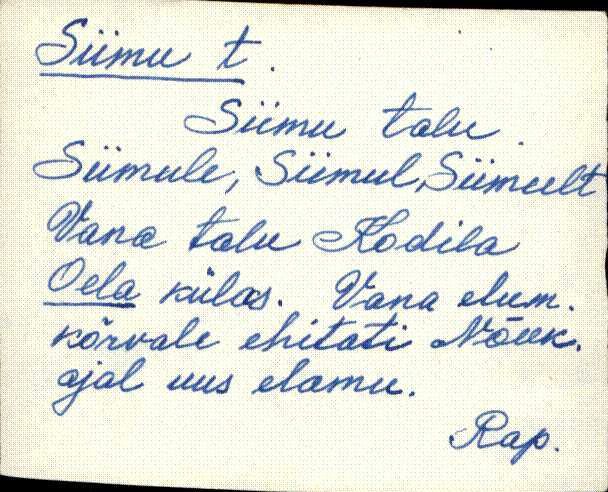 Siimu t.
Siimu talu.
Siimule, Siimul, Siimult
Vana talu Kodila
Oela külas. Vana elum.
kõrvale ehitati Nõuk.
ajal uus elamu.
Rap.